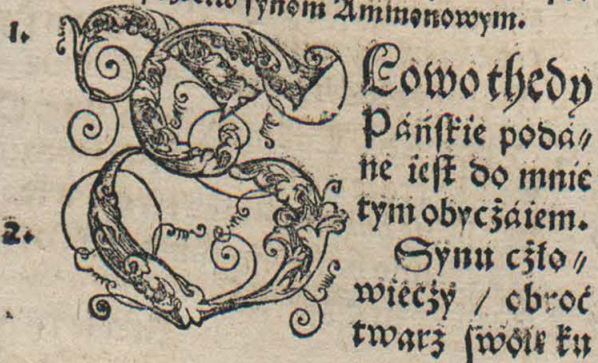 synom Ammonowym.
1.
SLowo thedy
Páńskie podá⸗
ne iest do mnie
tym obyczáiem.
2.
Synu czło⸗
wieczy / obroć
twarz swoię ku